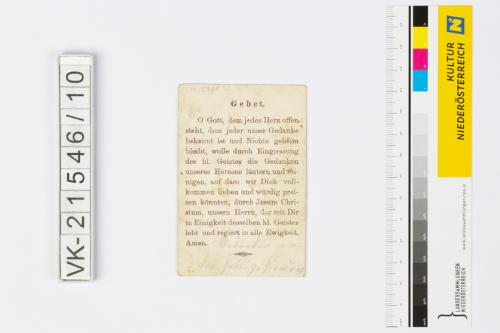 VK-21546/10
Gebet.
O Gott, dem jedes Herz offen
steht, dem jeder unser Gedanke
bekannt ist und Nichts geheim
bleibt, wolle durch Eingiessung
des hl. Geistes die Gedanken
unseres Herzens läutern und rei-
nigen, auf dass wir Dich voll-
kommen lieben und würdig prei-
sen könnten, durch Jesum Chri-
stum, unsern Herrn, der mit Dir
in Einigkeit desselben hl. Geistes
lebt und regiert in alle Ewigkeit.
Amen.
KULTUR
NIEDERÖSTERREICH
N
www.landessammlungen-noe.at
LANDESSAMMLUNGEN
NIEDERÖSTERREICH